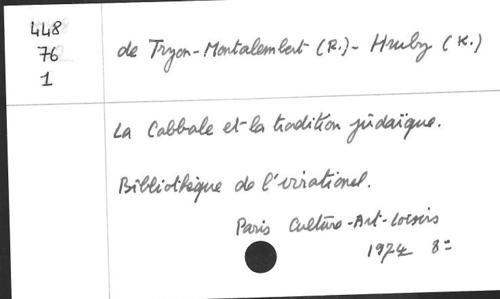 448
76
1
de Tryon-Montalembert (R.)- Hruby (K.)
La Cabbale et la tradition judaïque.
Bibliothèque de l'irrationnel.
Paris Culture-Art-Loisirs
1974 8=